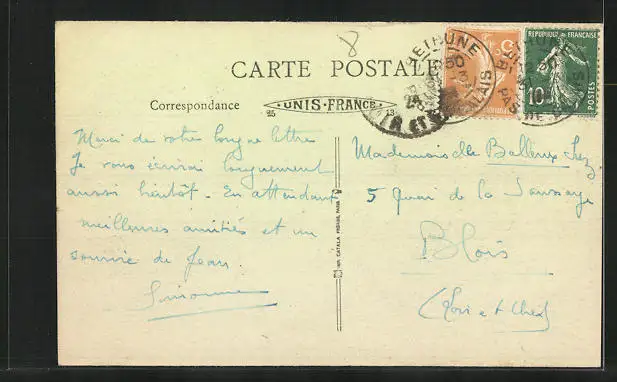 8
CARTE POSTALE
Correspondance
UNIS-FRANCE
BETHUNE
REPUBLIQUE FRANÇAISE
10
POSTES
Merci de votre longue lettre
Je vous écrirai longuement
aussi bientôt. En attendant
meilleures amitiés et un
sourire de Jean.
Simonne
IMP. CATALA FRERES, PARIS
Mademoiselle
5 Quai de la Saussaye
Blois
(Loir et Cher)